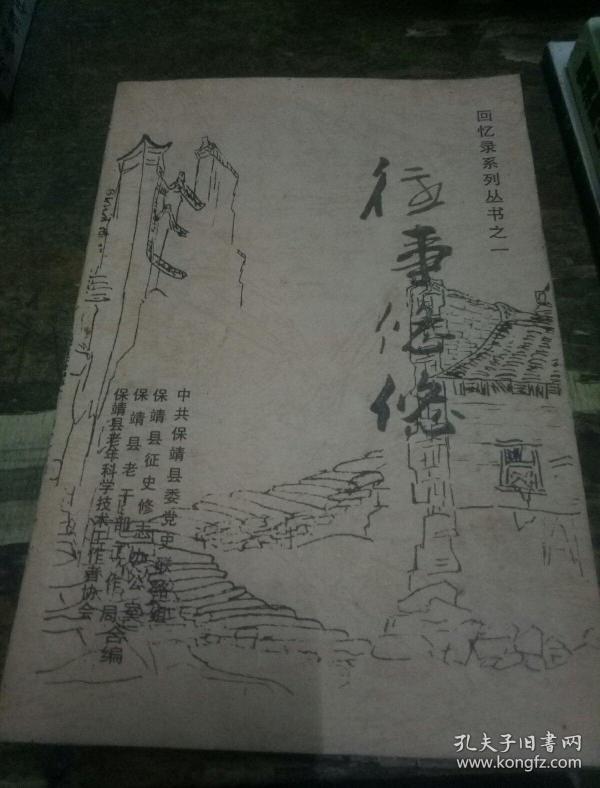 回忆录系列丛书之一
往事悠悠
中共保靖县委党史联络组
保靖县征史修志办公室
保靖县老干部工作局合编
保靖县老年科学技术工作者协会
孔夫子旧书网
www.kongfz.com